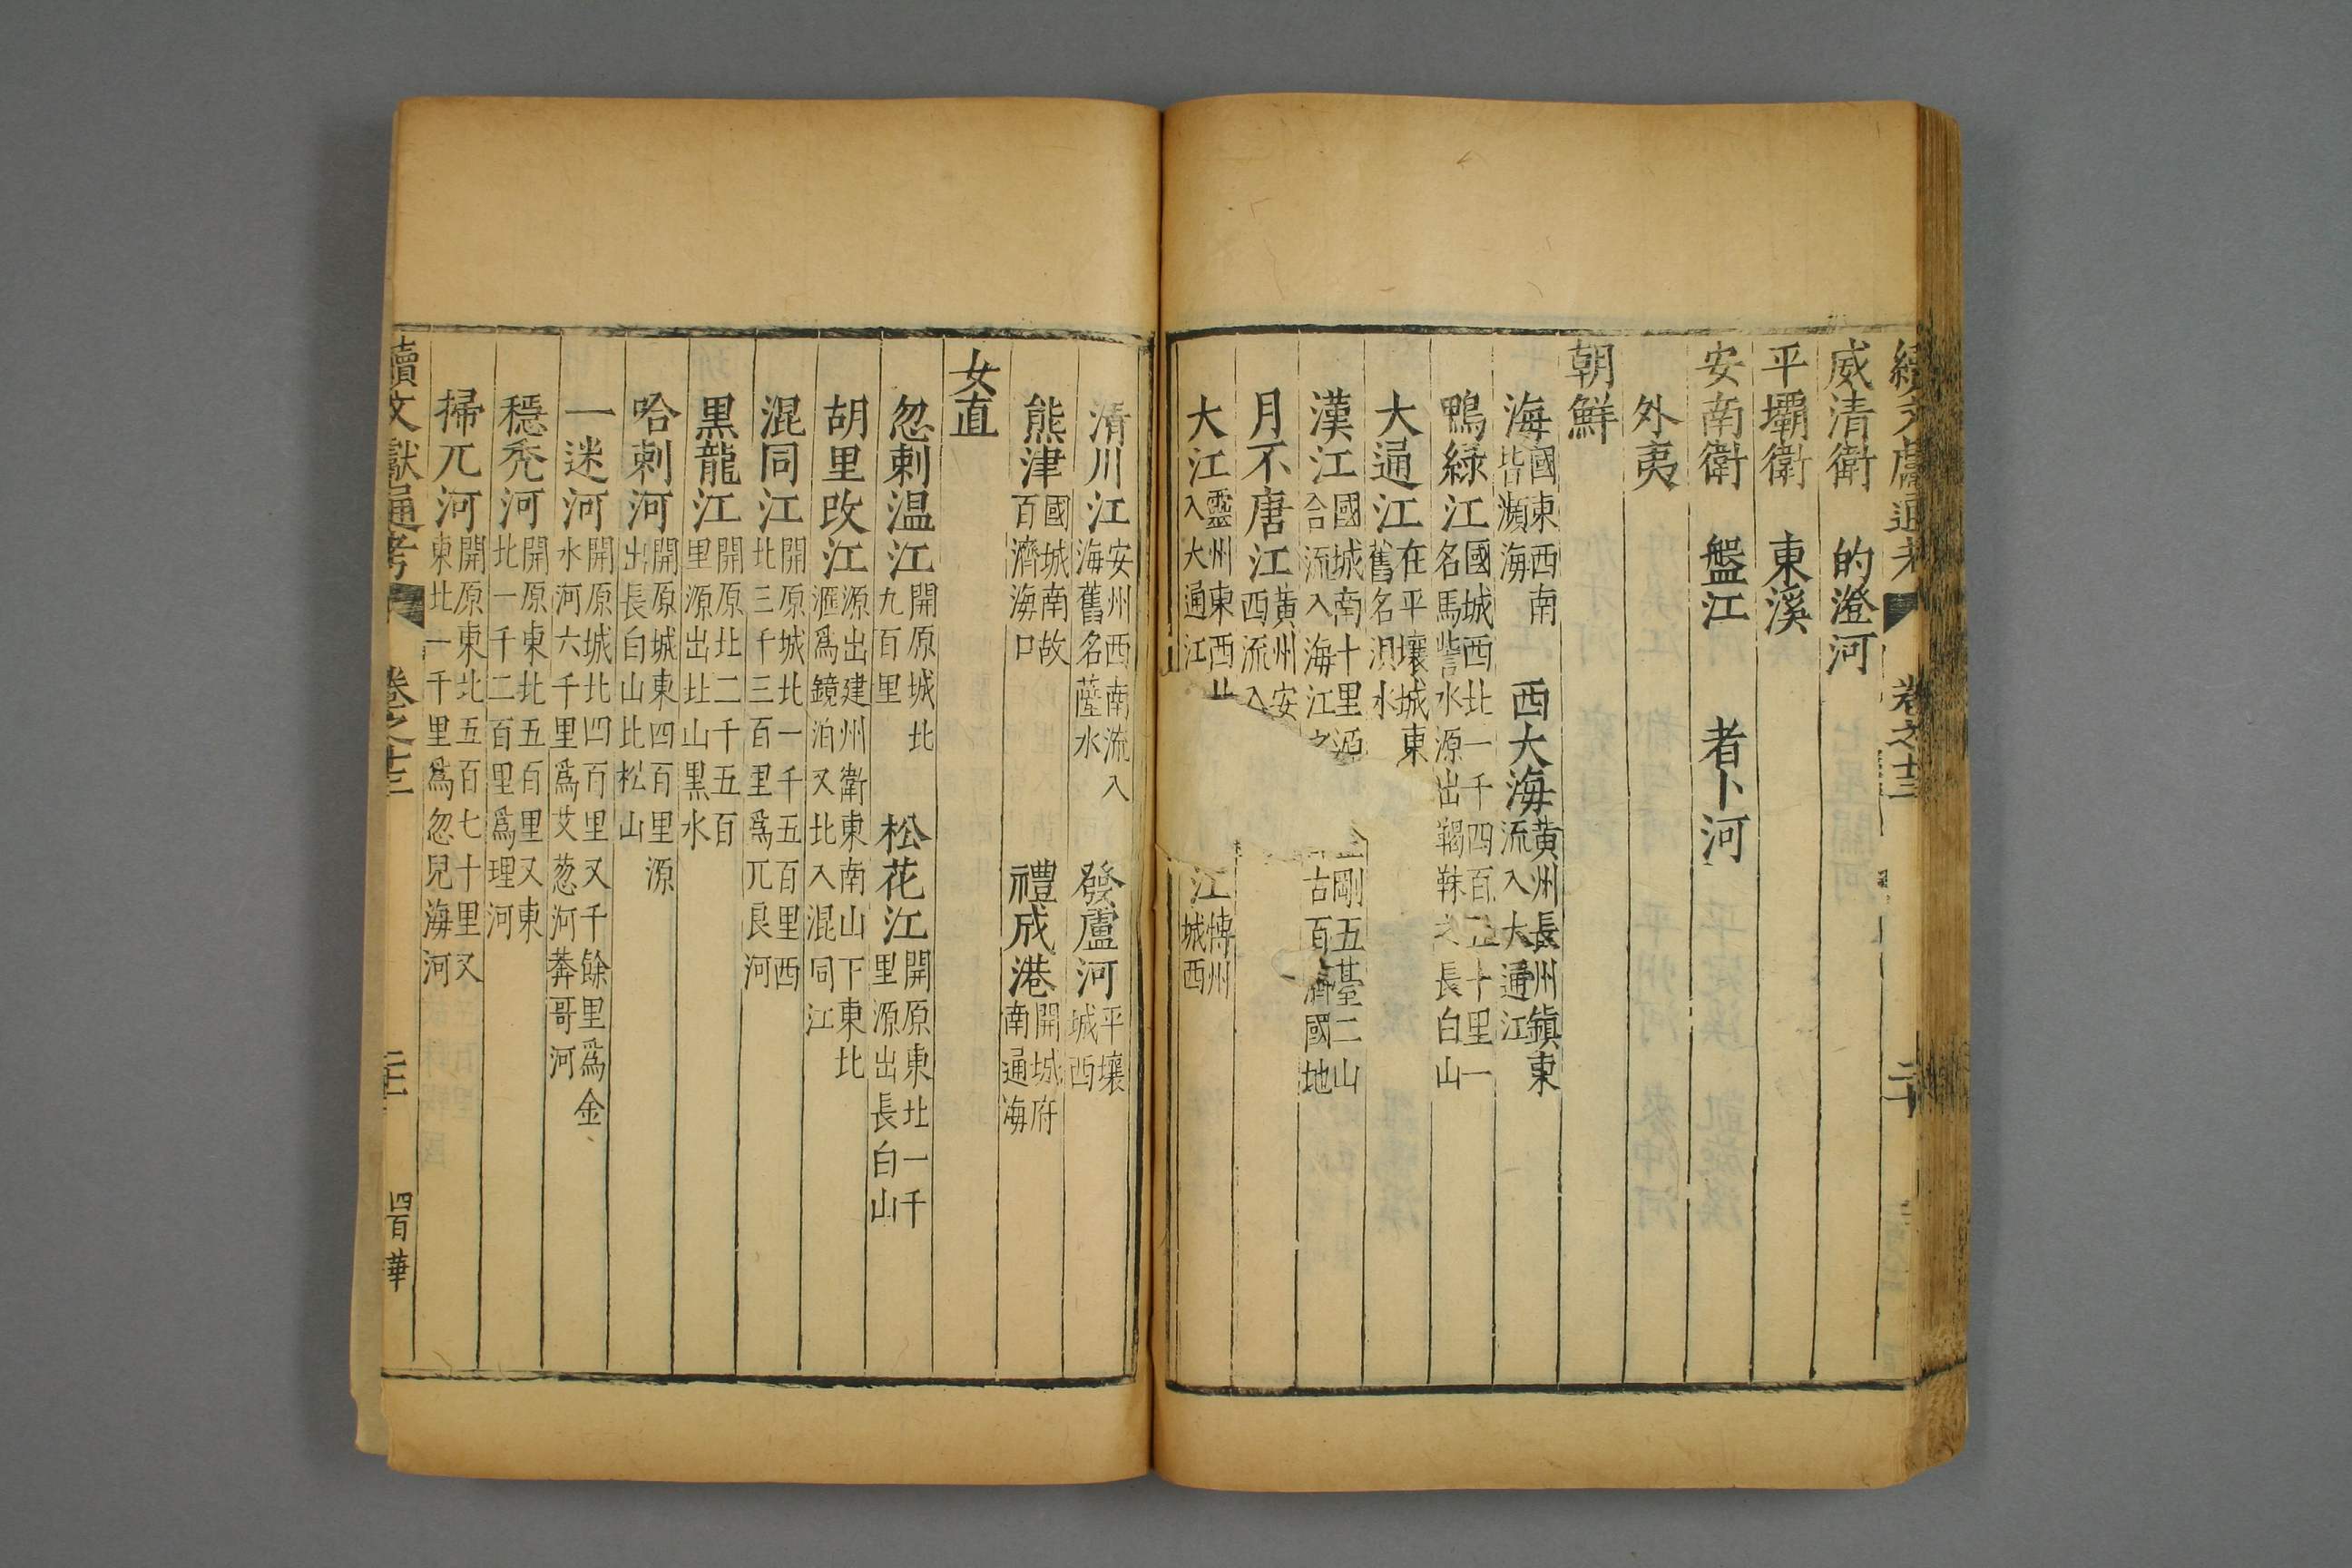 威清衛 的澄河
平壩衛 東溪
安南衛 盤江 者卜河
外夷
朝鮮
海國東西南皆瀕海 西大海黃州長州鎮東流入大通江
鴨綠江國城西北一千四百五十里一名馬訾水源出靺鞨之長白山
大通江在平壤城東舊名浿水
漢江國城南十里源 金剛五臺二山合流入海江之 古百濟國地
月不唐江黃州安 西流入
大江靈州東西北入大通江 江博州城西
清川江安州西南流入海舊名薩水 發盧河平壤城西
熊津國城南故百濟海口 禮成港開城府南通海
女直
忽剌温江開原城北九百里 松花江開原東北一千里源出長白山
胡里改江源出建州衛東南山下東北滙爲鏡泊又北入混同江
混同江開原城北一千五百里西北三千三百里爲兀良河
黑龍江開原北二千五百里源出北山黑水
哈剌河開原城東四百里源出長白山北松山
一迷河開原城北四百里又千餘里爲金水河六千里爲艾葱河莽哥河
穩禿河開原東北五百里又東北一千二百里爲理河
掃兀河開原東北五百七十里又東北一千里爲忽兒海河
續文獻通考 卷之十三 二十 四百 華